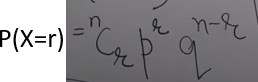 P(X=r) = ⁿCᵣ pʳ qⁿ⁻ʳ